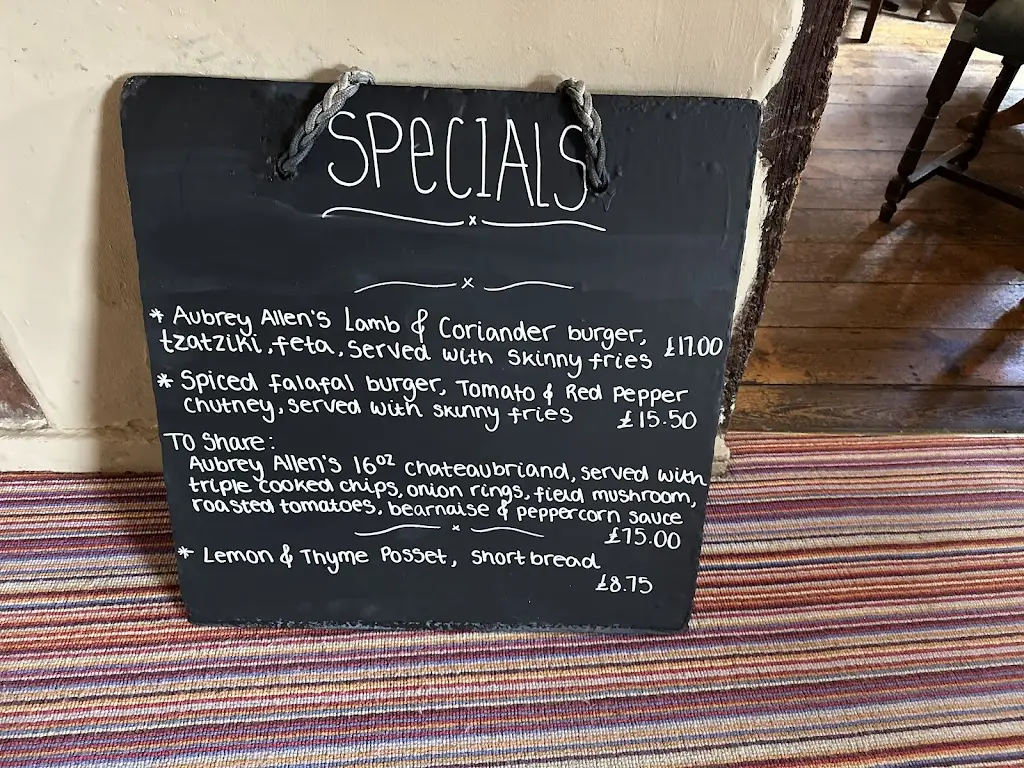 SPECIALS
* Aubrey Allen's Lamb & Coriander burger,
tzatziki, feta, served with skinny fries £17.00
* Spiced falafal burger, Tomato & Red Pepper
chutney, served with skinny fries £15.50
To Share:
Aubrey Allen's 16oz chateaubriand, served with
triple cooked chips, onion rings, field mushroom,
roasted tomatoes, bearnaise & peppercorn sauce
£75.00
* Lemon & Thyme Posset, shortbread
£8.75